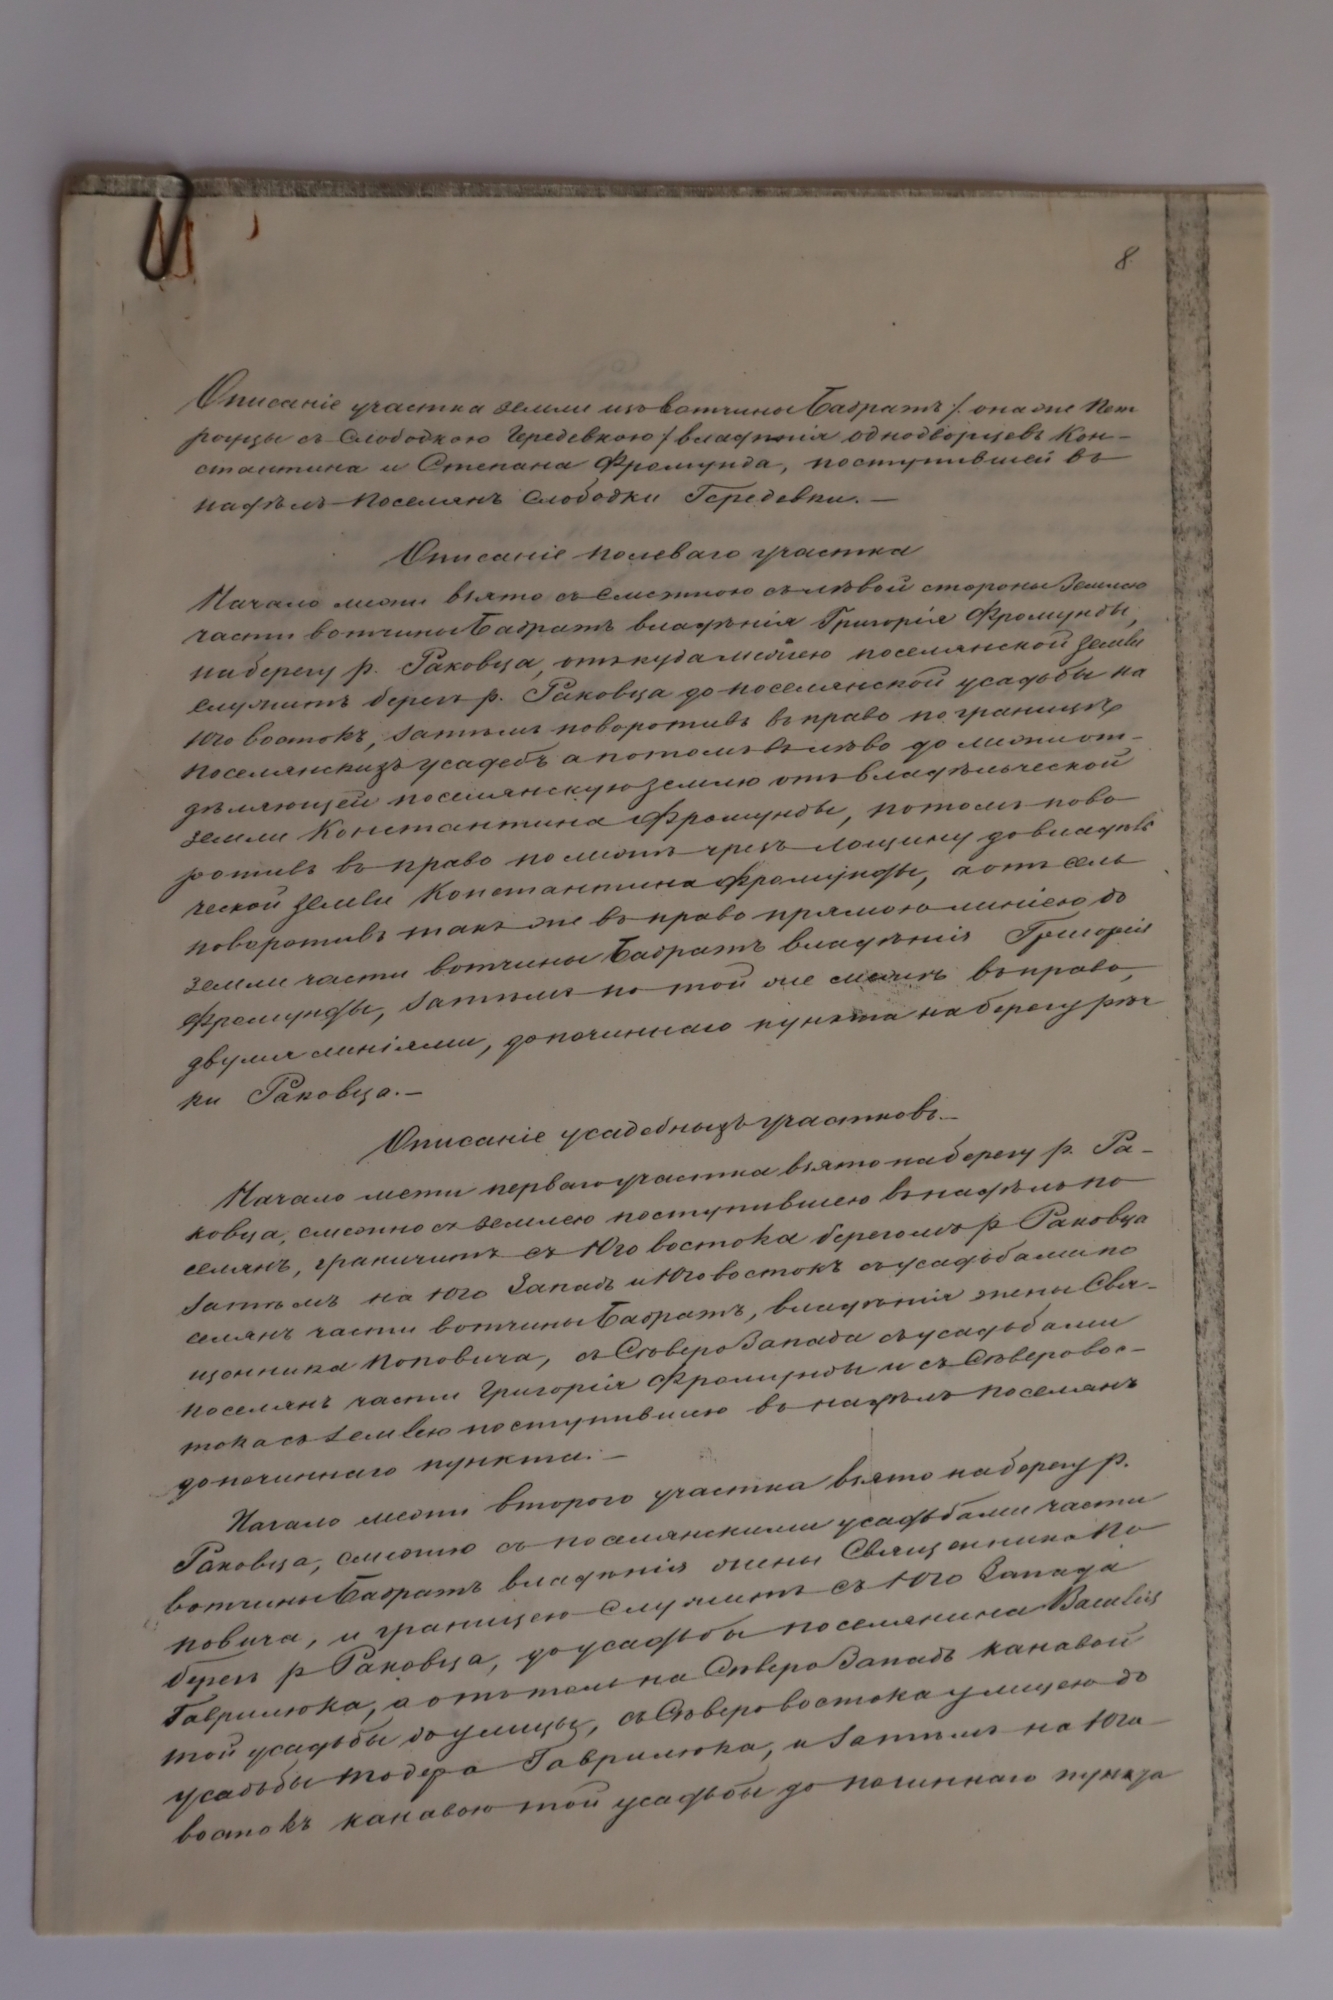 8
Описаніе участка земли изъ вотчины Бабратъ /: она же Пет
роуцы съ Слободкою Чередевкою / владѣнія однодворцевъ Кон-
стантина и Степана Фромунда, поступившей въ
надѣлъ поселянъ Слободки Передевки. —
Описаніе полеваго участка
Начало межи взято съ смежною съ лѣвой стороны землею
части вотчины Бабратъ владѣнія Григорія Фромунды,
на берегу р. Раковца, откуда межею поселянской земли
служитъ берегъ р. Раковца до поселянской усадьбы на
Юго востокъ, затѣмъ поворотивъ въ право по границѣ
поселянскихъ усадебъ а потомъ въ лѣво до межи от-
дѣляющей поселянскую землю отъ владѣльческой
земли Константина Фромунды, потомъ пово
ротивъ въ право по межѣ чрезъ лощину до владѣль
ческой земли Константина Фромунды, а отъ сель
поворотивъ такъ же въ право прямою линіею до
земли части вотчины Бабратъ владѣнія Григорія
Фромунды, затѣмъ по той же межѣ въ право,
двумя линіями, до починнаго пункта на берегу рѣч
ки Раковца. —
Описаніе усадебныхъ участковъ. —
Начало межи перваго участка взято на берегу р. Ра-
ковца, смежно съ землею поступившею въ надѣлъ по
селянъ, граничитъ съ Юго востока берегомъ р Раковца
затѣмъ на Юго Западъ и Юго востокъ съ усадьбами по
селянъ части вотчины Бабратъ, владѣнія жены Свя-
щенника Поповича, съ Сѣверо Запада съ усадьбами
поселянъ части Григорія Фромунды и съ Сѣверовос-
тока съ землею поступившею въ надѣлъ поселянъ
до починнаго пункта. —
Начало межи втораго участка взято на берегу р.
Раковца, смежно съ поселянскими усадьбами части
вотчины Бабратъ владѣнія жены Священника По
повича, и границею служитъ съ Юго Запада
берегъ р Раковца, до усадьбы поселянина Василія
Гаврилюка, а отъ толь на Сѣверо Западъ канавой
той усадьбы до улицы, съ Сѣверо востока улицею до
усадьбы Тодера Гаврилюка, и затѣмъ на Юго-
востокъ канавою той усадьбы до починнаго пункта